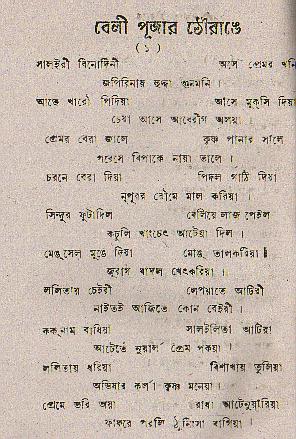 বেলী পূজার ঠৌরাঙে
( ১ )
সালইরী বিনোদিনী আসে প্রেমর খনি
জপিরিনাছ হুদ্দা গুনমনি ।
আতে খারৌ পিদিয়া আসে মুকসি দিয়া
চেয়া আসে আবেরীগ অলয়া ।
প্রেমর বেরা জালে কৃষ্ণ পানার সালে
পরসে বিপাকে নায়া তালে ।
চরনে বেরা দিয়া পিদল গাঠি দিয়া
নূপুরর রৌমে মাল করিয়া ।
সিন্দুর ফুটাদিল বেলিয়ে লাজ পেইল
কচুলি খাংচেৎ আটেয়া দিল ।
মেঙুসেল মুঙে দিয়া মোঙ তালকরিয়া ।
জুরাগ বাদল খেৎকরিয়া ।
ললিতায় চেইরী লেপয়াতে আটিরী
নাইতই আজিতে কোন বেইরী ।
ককনাম বাধিয়া সালইলিতা আটিরা
আটেতৈ নুয়ার্ল প্রেম পকয়া ।
ললিতায় ধরিয়া বিশাখায় তুলিয়া
অভিষার কর্লা কৃষ্ণ মনেয়া ।
প্রেমে ভরি অয়া রাধা আটেনুয়ারিয়া
ফাকরে পরলি ঠুনিংসা বাগিয়া ।